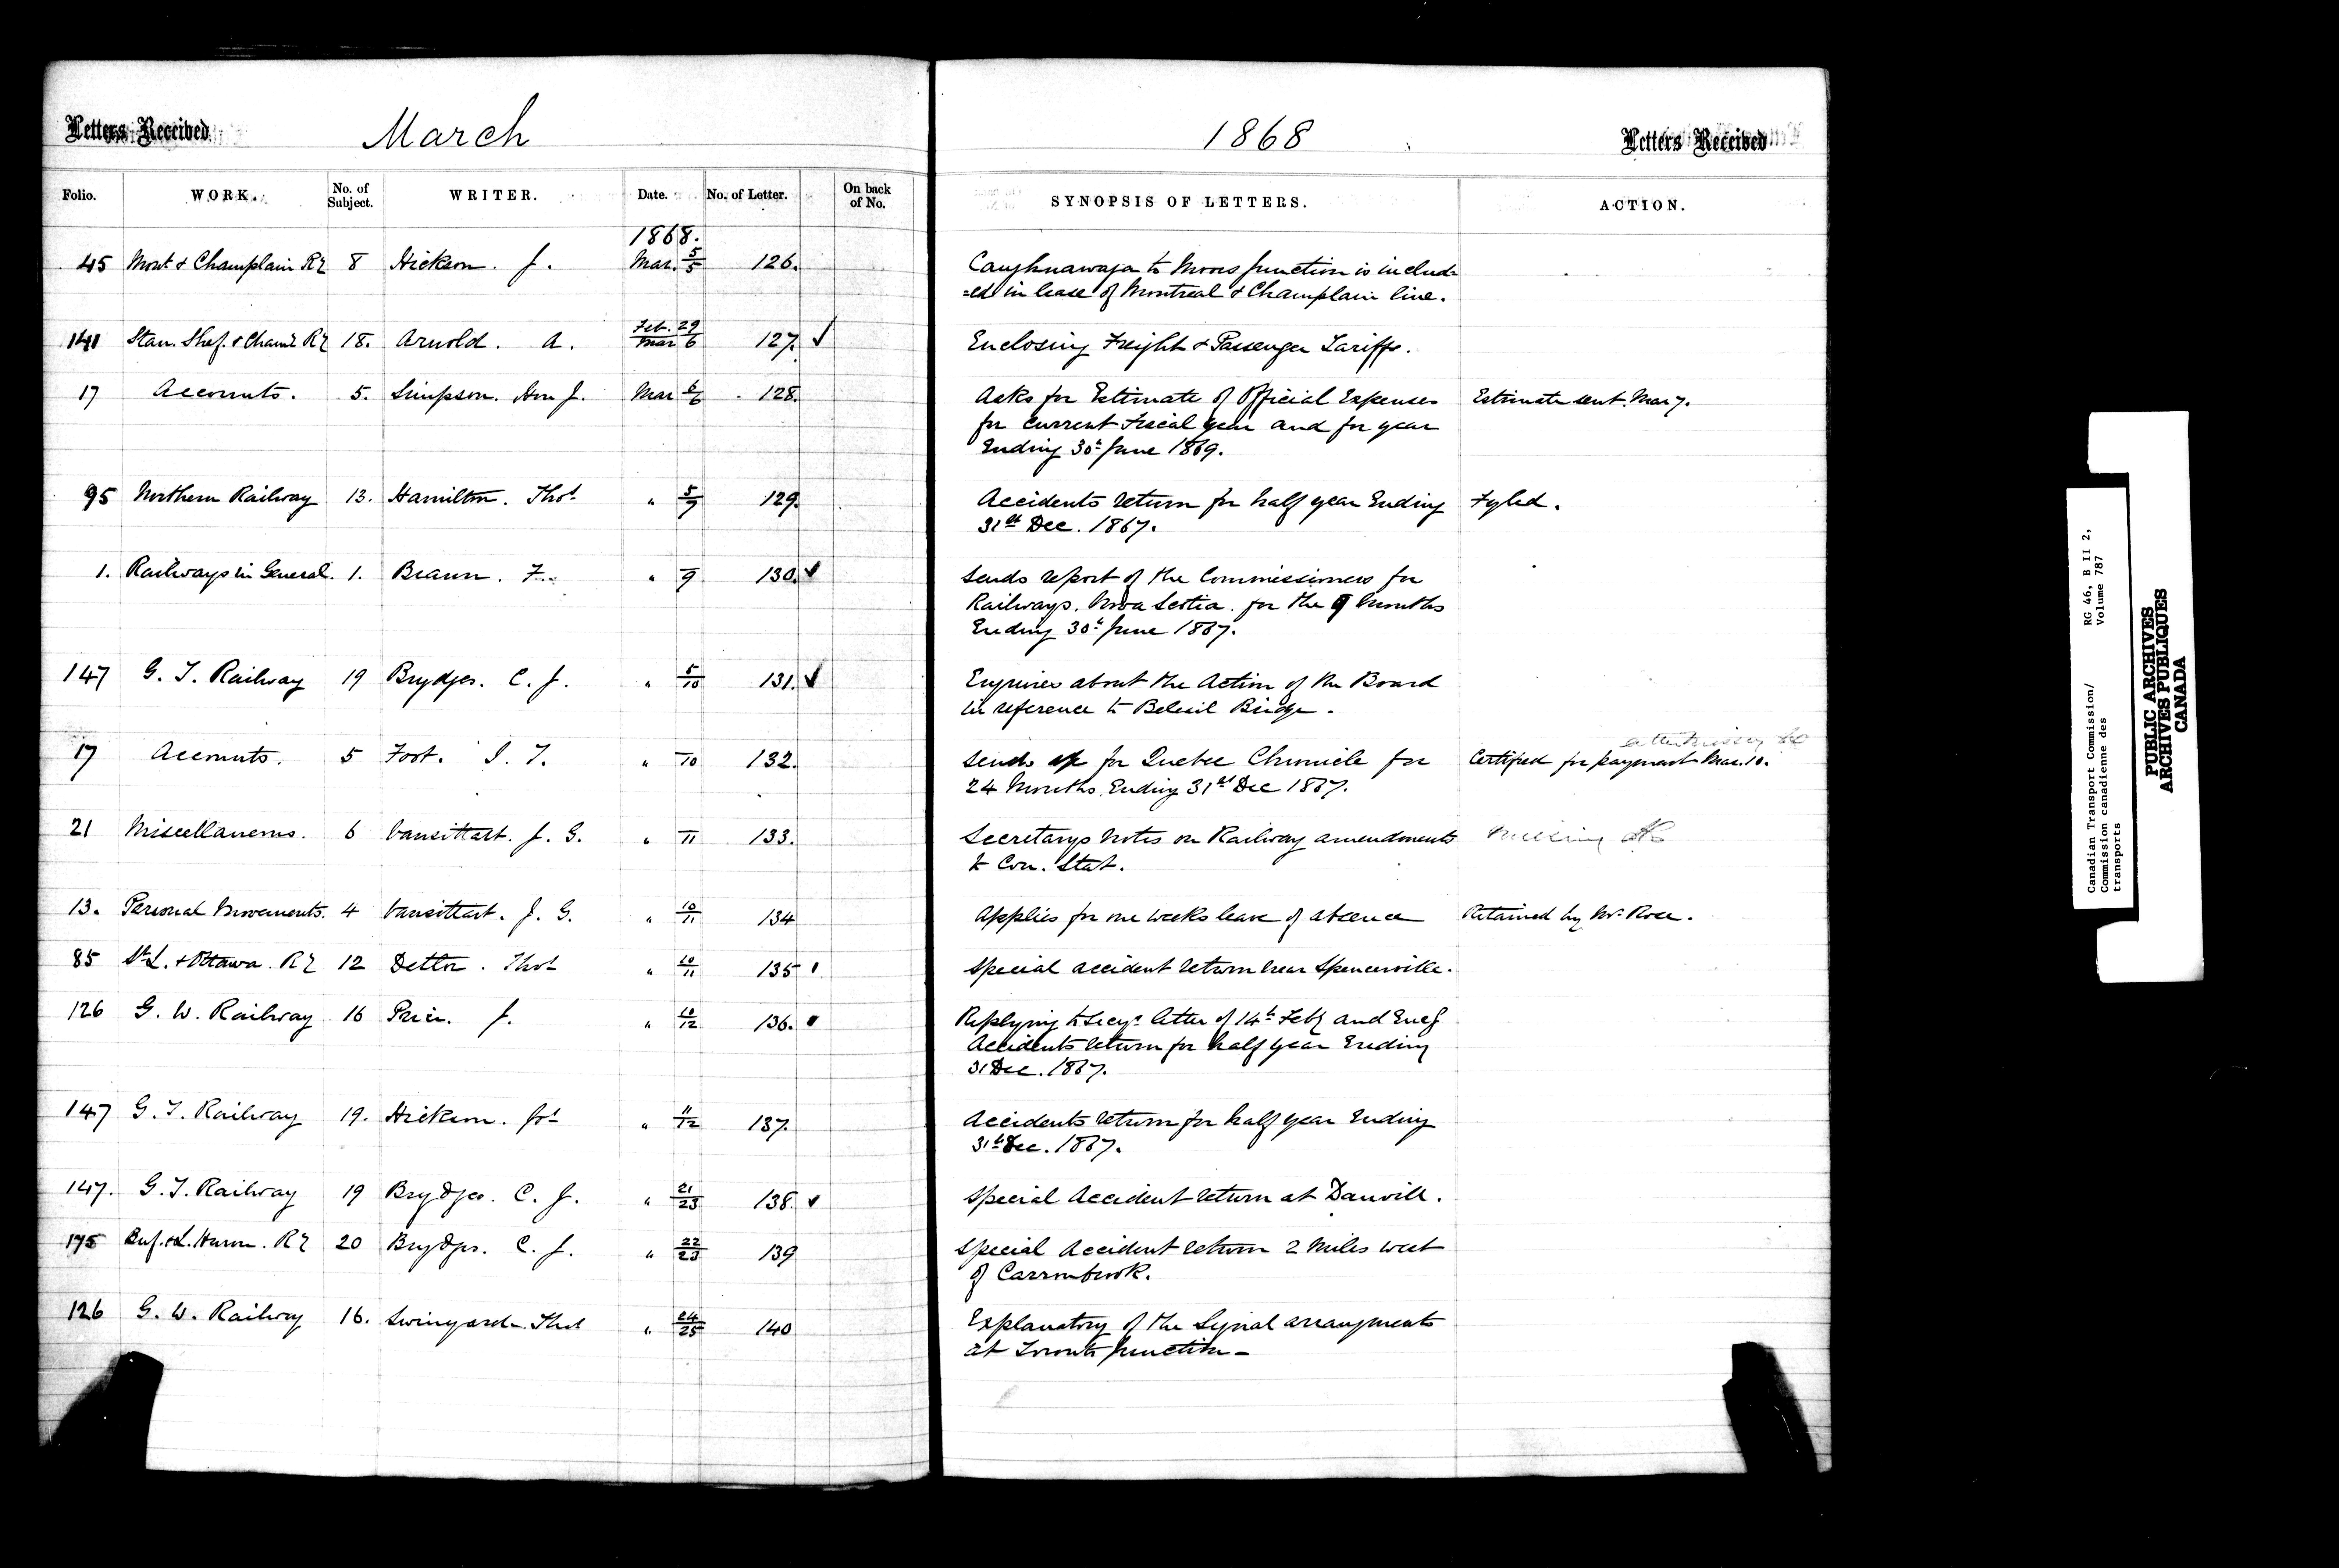 Letters Received
March
Folio. WORK. No. of Subject. WRITER. Date. No. of Letter. On back of No.
1868.
45 Mont & Champlain Ry 8 Hickson. J. Mar. 5/5 126.
141 Stan. Shef. & Cham. Ry 18. Arnold. A. Feb. 29 / Mar 6 127. ✓
17 Accounts. 5. Simpson. Hon J. Mar 6/6 128.
95 Northern Railway 13. Hamilton. Thos " 5/9 129.
1. Railways in General. 1. Braun. F. " 9 130. ✓
147 G. T. Railway 19 Brydges. C. J. " 5/10 131. ✓
17 Accounts. 5 Foot. S. T. " 10 132.
21 Miscellaneous. 6 Vansittart. J. G. " 11 133.
13. Personal Movements. 4 Vansittart. J. G. " 10/11 134
85 St L. & Ottawa. Ry 12 Detlor. Thos " 10/11 135
126 G. W. Railway 16 Price. J. " 10/12 136.
147 G. T. Railway 19. Hickson. Jos " 11/12 137.
147. G. T. Railway 19 Brydges. C. J. " 21/23 138. ✓
175 Buf. & L. Huron. Ry 20 Brydges. C. J. " 22/23 139
126 G. W. Railway 16. Swinyard. Thos " 24/25 140
1868
Letters Received
SYNOPSIS OF LETTERS. ACTION.
Caughnawaga to Moors Junction is includ=
=ed in lease of Montreal & Champlain line.
Enclosing Freight & Passenger Tariffs.
Asks for Estimate of Official Expenses Estimate sent. Mar 7.
for current Fiscal year and for year
Ending 30th June 1869.
Accidents return for half year Ending Fyled.
31st Dec. 1867.
Sends report of the Commissioners for
Railways. Nova Scotia. for the 9 Months
Ending 30th June 1867.
Enquires about the Action of the Board
in reference to Beloeil Bridge.
Sends a/c for Quebec Chronicle for Certified for payment Mar. 10.
24 Months Ending 31st Dec 1867.
Secretarys Notes on Railway amendments missing
to Con. Stat.
Applies for one weeks leave of absence Retained by Mr Rose.
Special accident return near Spencerville.
Replying to Secys letter of 14th Feby and Encg
Accidents return for half year Ending
31 Dec. 1867.
Accidents return for half year Ending
31st Dec. 1867.
Special Accident return at Danvill.
Special Accident return 2 Miles west
of Carronbrook.
Explanatory of the Signal arrangements
at Toronto Junction-
Canadian Transport Commission/
Commission canadienne des
transports
RG 46, B II 2,
Volume 787
PUBLIC ARCHIVES
ARCHIVES PUBLIQUES
CANADA